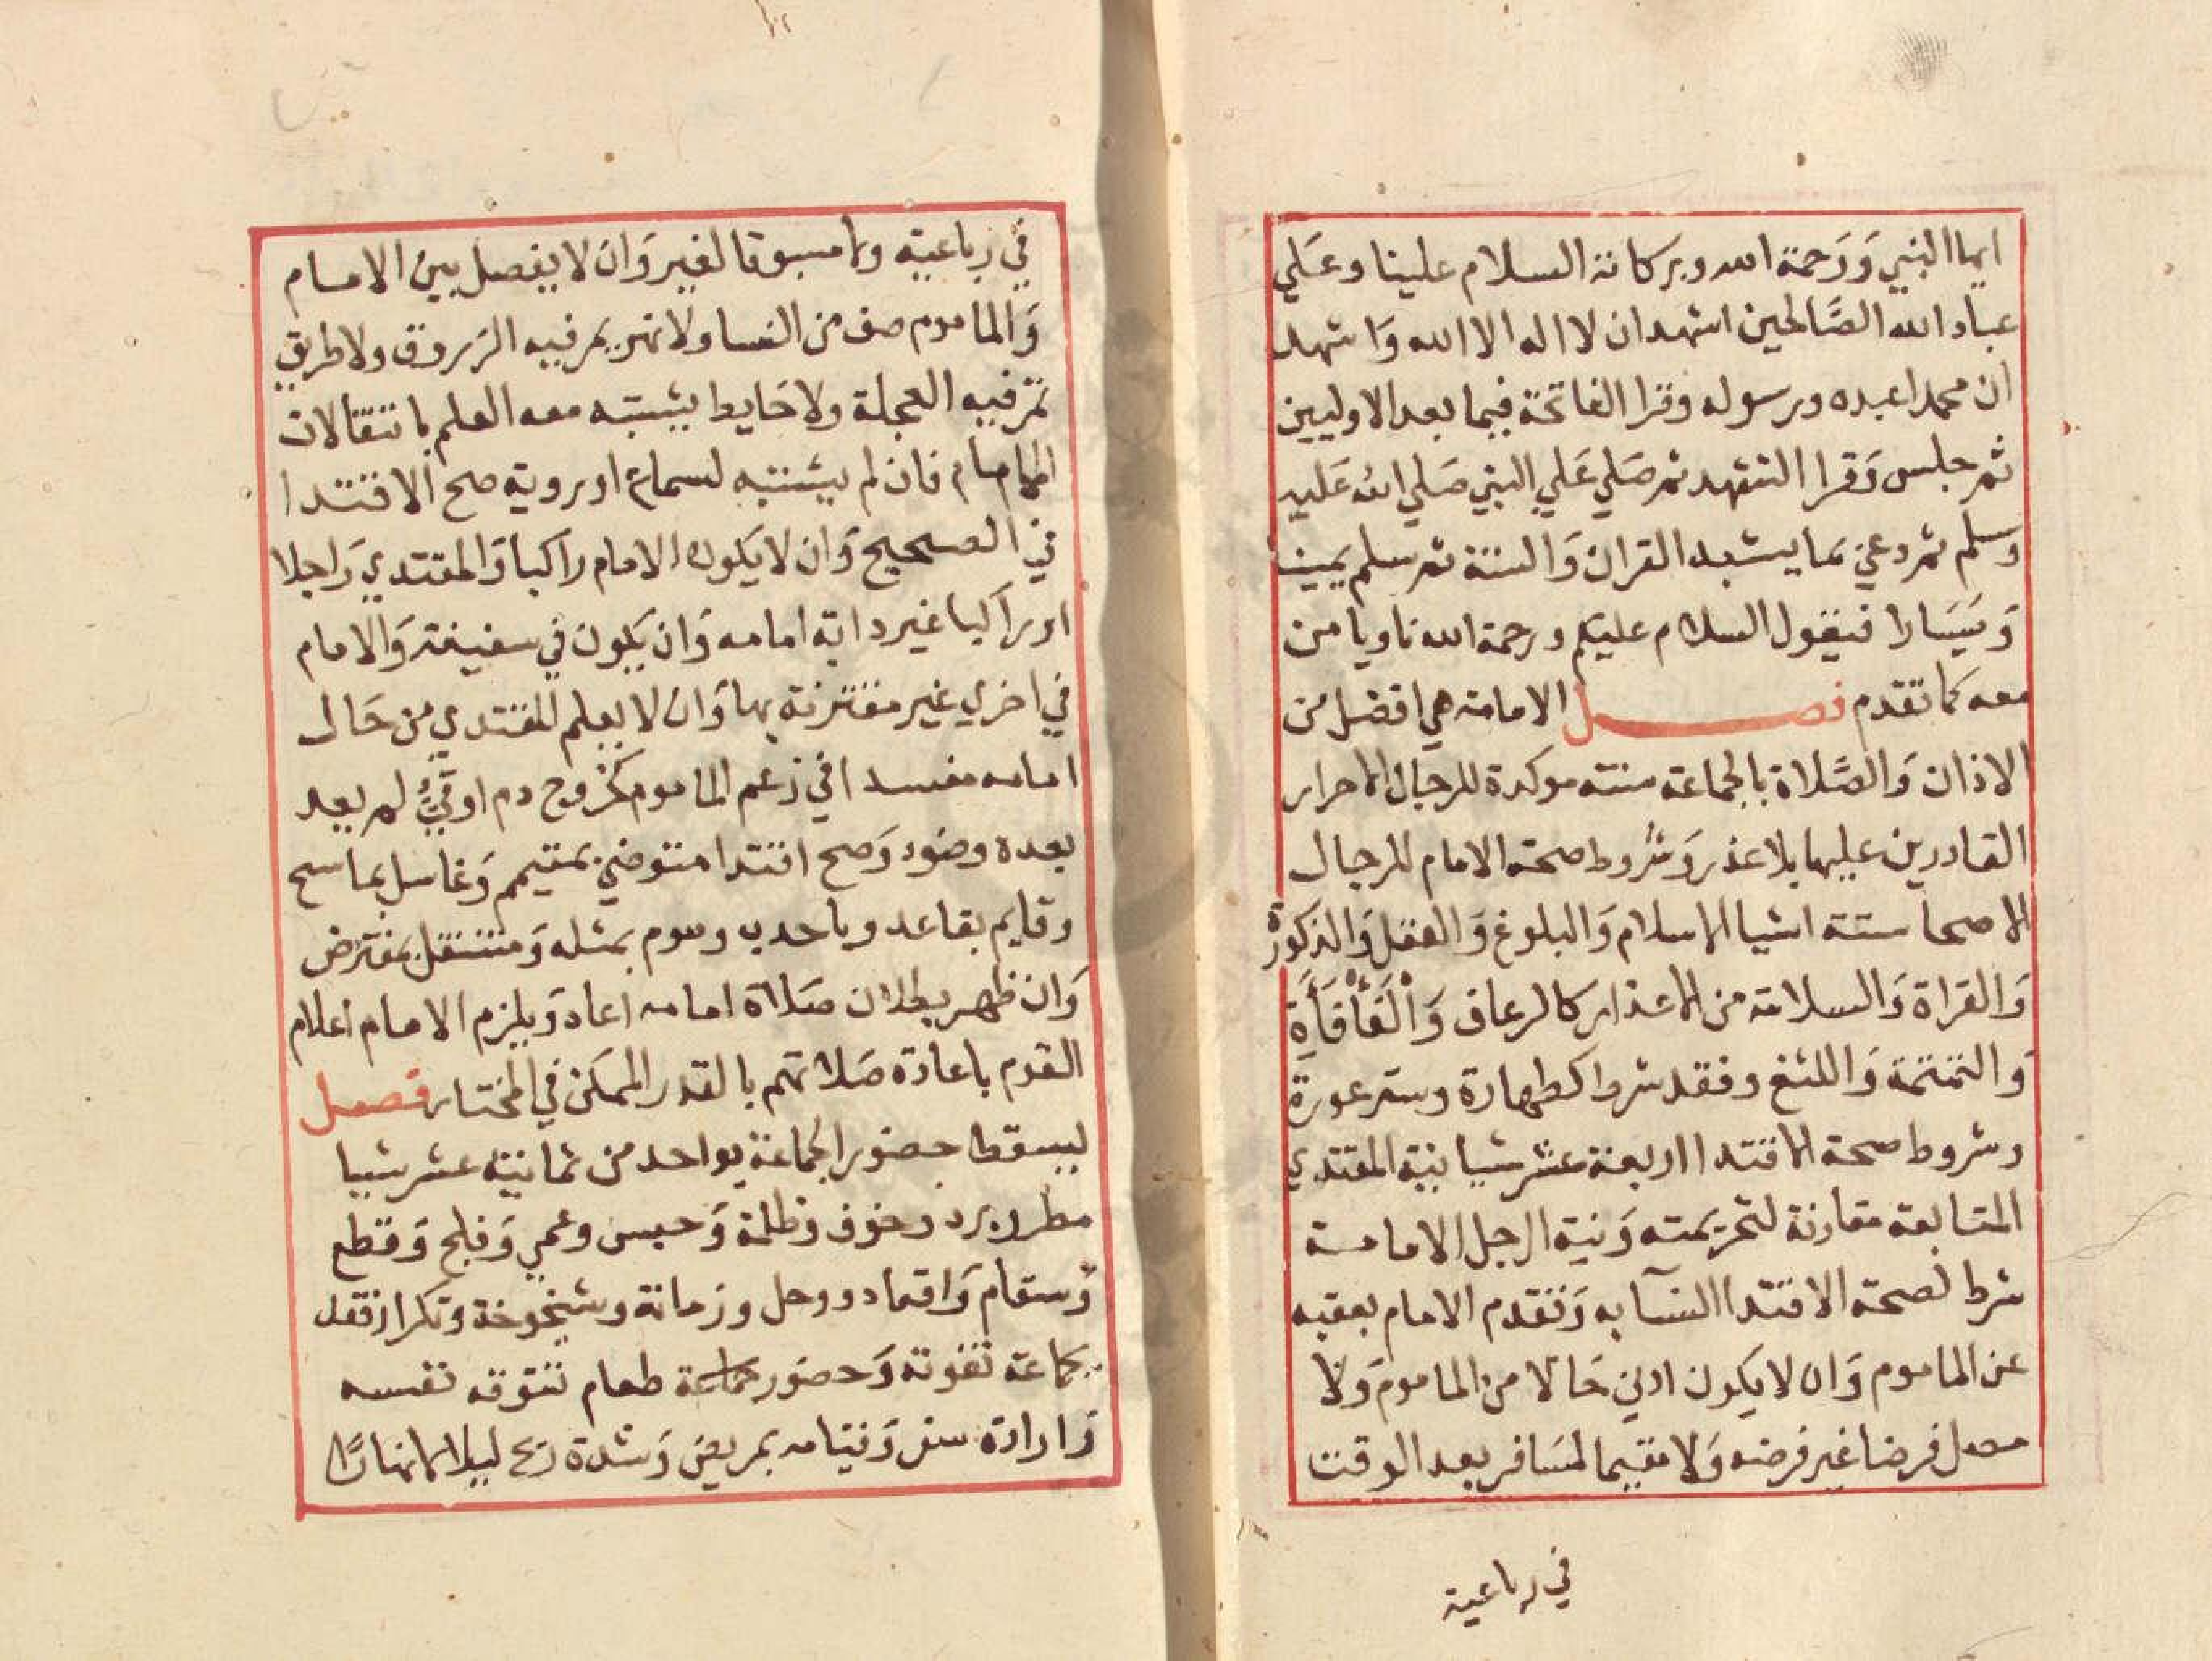 ايها النبي وَرَحمة الله وبركاته السلام علينا وعَلي
عباد الله الصَّالحين اشهد ان لا اله الا الله وَاشهد
ان محمدا عبده ورسوله وقرا الفاتحة فيما بعد الاوليين
ثم جلس وَقرا التشهد ثم صَلي عَلي النبي صَلي الله عَليه
وسلم ثم دعي بما يشبه القران وَالسنة ثم سلم يمينا
وَيسَارا فيقول السلام عليكم ورحمة الله ناويا من
معه كما تقدم فصل الامامة هي افضل من
الاذان وَالصَّلاة بالجماعة سنته موكدة للرجال الاحرار
القادرين عليها بلا عذر وَشروط صحة الامام للرجال
الاصحا ستة اشيا الاسلام وَالبلوغ وَالعقل وَالذكورة
وَالقراة وَالسلامة من الاعذار كالرعاف وَالْفَأْفَأَة
وَالتمتمة وَاللثغ وفقد شرط كطهارة وستر عورة
وشروط صحة الاقتدا اربعة عشر شيا نية المقتدي
المتابعة مقارنة لتحريمته وَنية الرجل الامامة
شرط لصحة الاقتدا النسآ به وَتقدم الامام بعقبه
عن الماموم وَان لا يكون ادني حَالا من الماموم وَلا
مصل فرضا غير فرضه وَلا مقيما لمسَافر بعد الوقت
في رباعية
في رباعيته ولا مسبوقا لغير وَان لا يفصل بين الامام
وَالماموم صف من النسا ولا نهر يمر فيه الزروق ولا طريق
تمر فيه العجلة ولا حَايط يشتبه معه العلم بانتقالات
الامام فان لم يشتبه لسماع او روية صح الاقتدا
في الصحيح وَان لا يَكون الامام راكبا وَالمقتدي رَاجلا
او راكبا غير دابة امامه وَان يكون في سفينة وَالامام
في اخري غير مقترنة بها وَان لا يعلم المقتدي من حَال
امامه مفسدا في زعم الماموم كخروج دم او قيءٍ لم يعد
بعده وضوء وَصح اقتدا متوضي بمتيمم وَغاسل بماسح
وقايم بقاعد وباحدب وموم بمثله وَمتنفل بمفترض
وَان ظهر بطلان صَلاة امامه اعاد وَيلزم الامام اعلام
القوم باعادة صَلاتهم بالقدر الممكن في المختار فصل
ليسقط حضور الجماعة بواحد من ثمانية عشر شيا
مطر وبرد وخوف وظلمة وَحبس وعمي وَفلج وَقطع
وَسقام وَاقعاد ووحل وزمانة وشيخوخة وتكرار فقه
بجماعة تفوته وَحضور طعام تتوقه نفسه
وَارادة سفر وَقيامه بمريض وَشدة ريح ليلا لا نهارًا